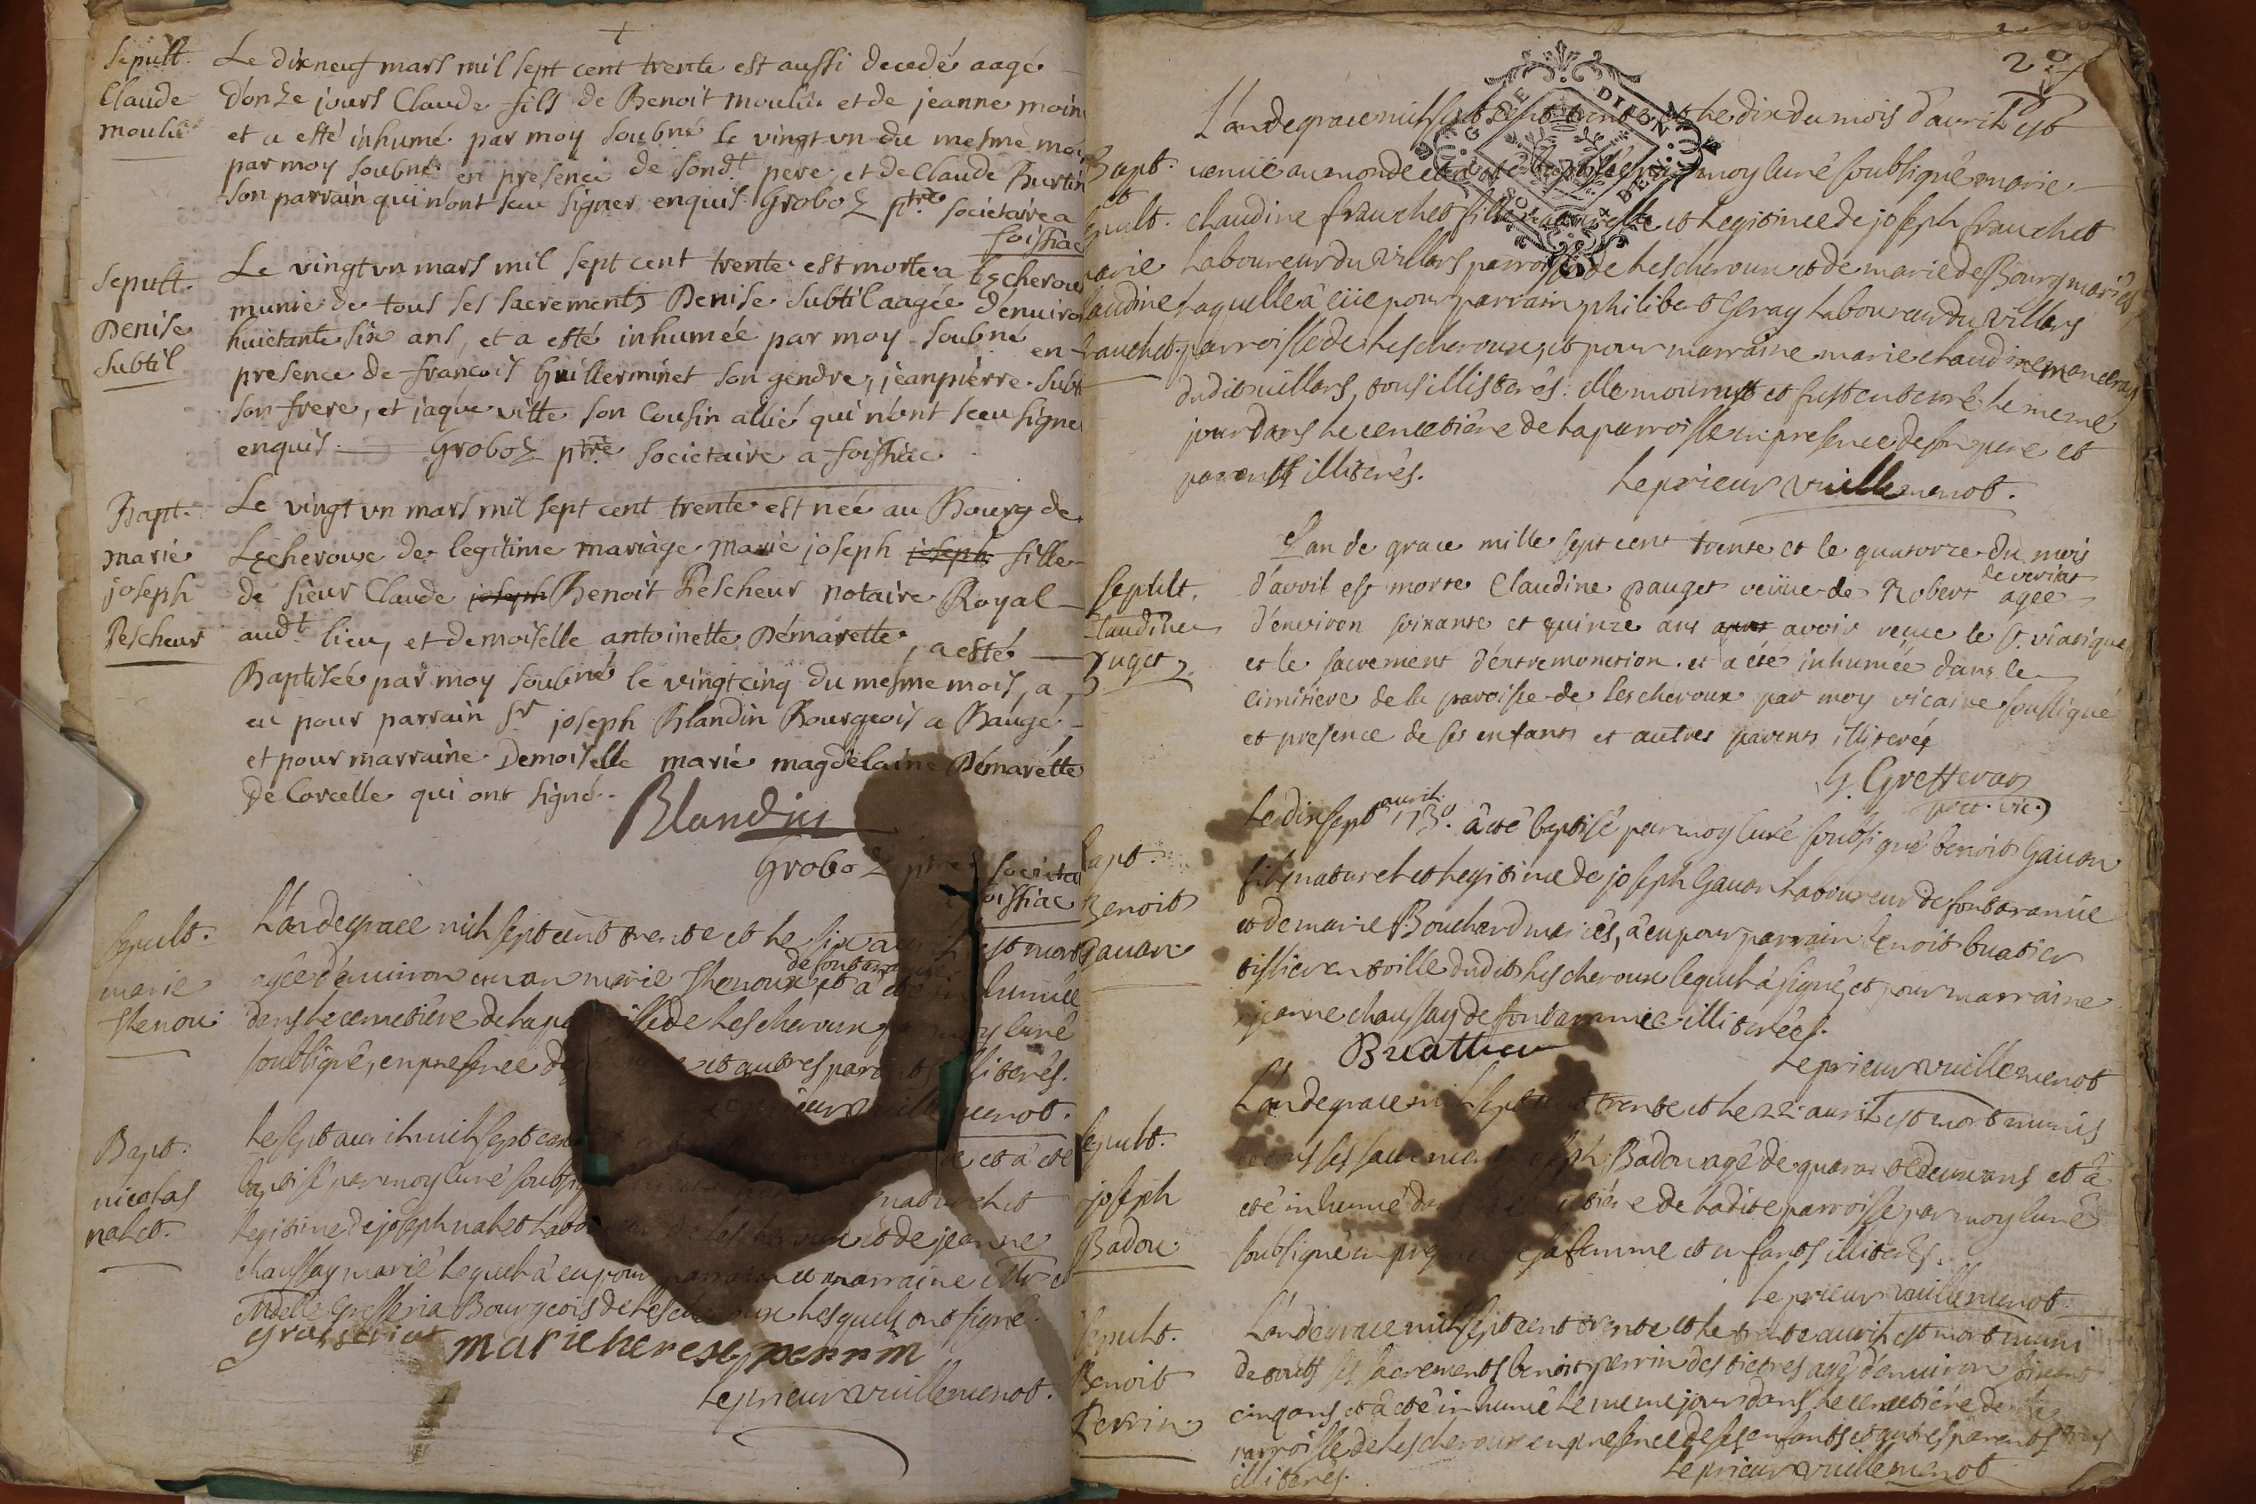 +
Sepult.
Claude
moulin
Le dixneuf mars mil sept cent trente est aussi decedé aagé
d'onze jours Claude fils de Benoit moulin et de jeanne moin
et a esté inhumé par moy soubné le vingt vn du mesme moi
par moy soubné en presence de sond.t pere et de Claude Burtin
son parrain qui n'ont sceu signer enquis Groboz ptre societaire a
foissiac
Sepult.
Denise
subtil
Le vingt vn mars mil sept cent trente est morte a lescherou
munie de tous ses sacrements Denise subtil aagée d'enuiron
huictante six ans, et a esté inhumée par moy soubné en
presence de francois Guillerminet son gendre, jeanpierre subti
son frere, et jaque vitte son Cousin allié qui n'ont sceu signe
enquis Groboz ptre societaire a foissiac
Bapt.
marie
joseph
Pescheur
Le vingt vn mars mil sept cent trente est née au Bourg de
Lecheroux de legitime mariage marie joseph joseph fille
de sieur Claude joseph Benoit Pescheur notaire Royal
aud.t lieu, et demoiselle antoinette Démarette, a esté
Baptisée par moy soubné le vingtcinq du mesme mois, a
eu pour parrain Sr joseph Blandin Bourgeois a Baugé
et pour marraine Demoiselle marie magdelaine Démarette
de Corcelle qui ont signé.
Blandin
Groboz ptre societa
foissiac
Sepult.
marie
Thenou
L'an de grace mil sept cent trente et le six est mort
agée d'enuiron un an marie Thenoux et a été inhumée
dans le cemetiére de la de lescheroux moy curé
soubsigné, en presence et autres parents illiterés.
Bapt.
nicolas
nalet.
le sept auril mil sept cent et a été
baptisé par moy curé soubsig naturel et
legitime de joseph nalet de lescheroux et de jeanne
chaussay mariés lequel a eu pour parrain et marraine
Bourgeois de lescheroux lesquels ont signé.
marie therese perrin
le prieur vuillemenot.
Bapt.
et
Sepult.
marie
claudine
frauchet.
L'an de grace mil sept cent trente et le dix du mois d'auril est
venüe au monde et a été baptisée par moy curé soubsigné marie
claudine frauchet fille naturelle et legitime de joseph frauchet
laboureur du villars parroisse de lescheroux et de marie de Bourg mariés
laquelle a eüe pour parrain philibert Geray laboureur du villars
parroisse de lescheroux, et pour marraine marie claudine
dudit villars, tous illiterés. elle mourut et fust enterré le meme
jour dans le cemetiére de la parroisse en presence de son pere et
parents illiterés.
le prieur vuillemenot.
Sepult.
Claudine
Puget
L'an de grace mille sept cent trente et le quatorze du mois
d'avril est morte Claudine pauget veüve de Robert de veriat agée
d'environ soixante et quinze ans apres avoir receue le St. viatique
et le sacrement d'extremonction. et a été inhumée dans le
cimitiere de la paroisse de lescheroux par moy vicaire soussigné
et presence de ses enfants et autres parents illiterés
Bapt.
Benoit
Gauan
Le dix sept auril 1730. a été baptisé par moy curé soubsigné benoit Gauan
fils naturel et legitime de joseph Gauan laboureur de fontaramie
et de marie Bouchard mariés, a eu pour parrain benoit buatier
tissier en toille dudit lescheroux lequel a signé, et pour marraine
jeanne chaussay de fontaramie illiterées.
Buathier
le prieur vuillemenot
Sepult.
joseph
Badou.
L'an de grace mil sept cent trente et le 22 auril est mort munis
de tous ses sacrements joseph Badou agé de quarante deux ans et a
été inhumé dans le cemetiére de ladite parroisse par moy curé
soubsigné en presence de sa femme et enfants illiterés.
le prieur vuillemenot.
Sepult.
Benoit
Perrin
L'an de grace mil sept cent trente et le trente auril est mort muni
de touts ses sacrements benoit perrin agé d'enuiron
cinq ans et a été inhumé le meme jour dans le cemetiére de la
parroisse de lescheroux en presence de ses enfants et autres parents tous
illiterés.
le prieur vuillemenot